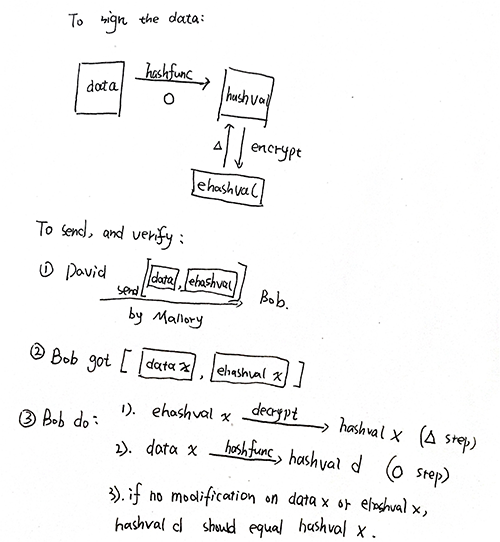 To sign the data:
data
hashfunc
O
hashval
Δ
encrypt
ehashval
To send, and verify:
① David
send [data, ehashval]
by Mallory
Bob.
② Bob got [ data x , ehashval x ]
③ Bob do:
1). ehashval x decrypt hashval x (Δ step)
2). data x hashfunc hashval d (O step)
3). if no modification on data x or ehashval x,
hashval d should equal hashval x.